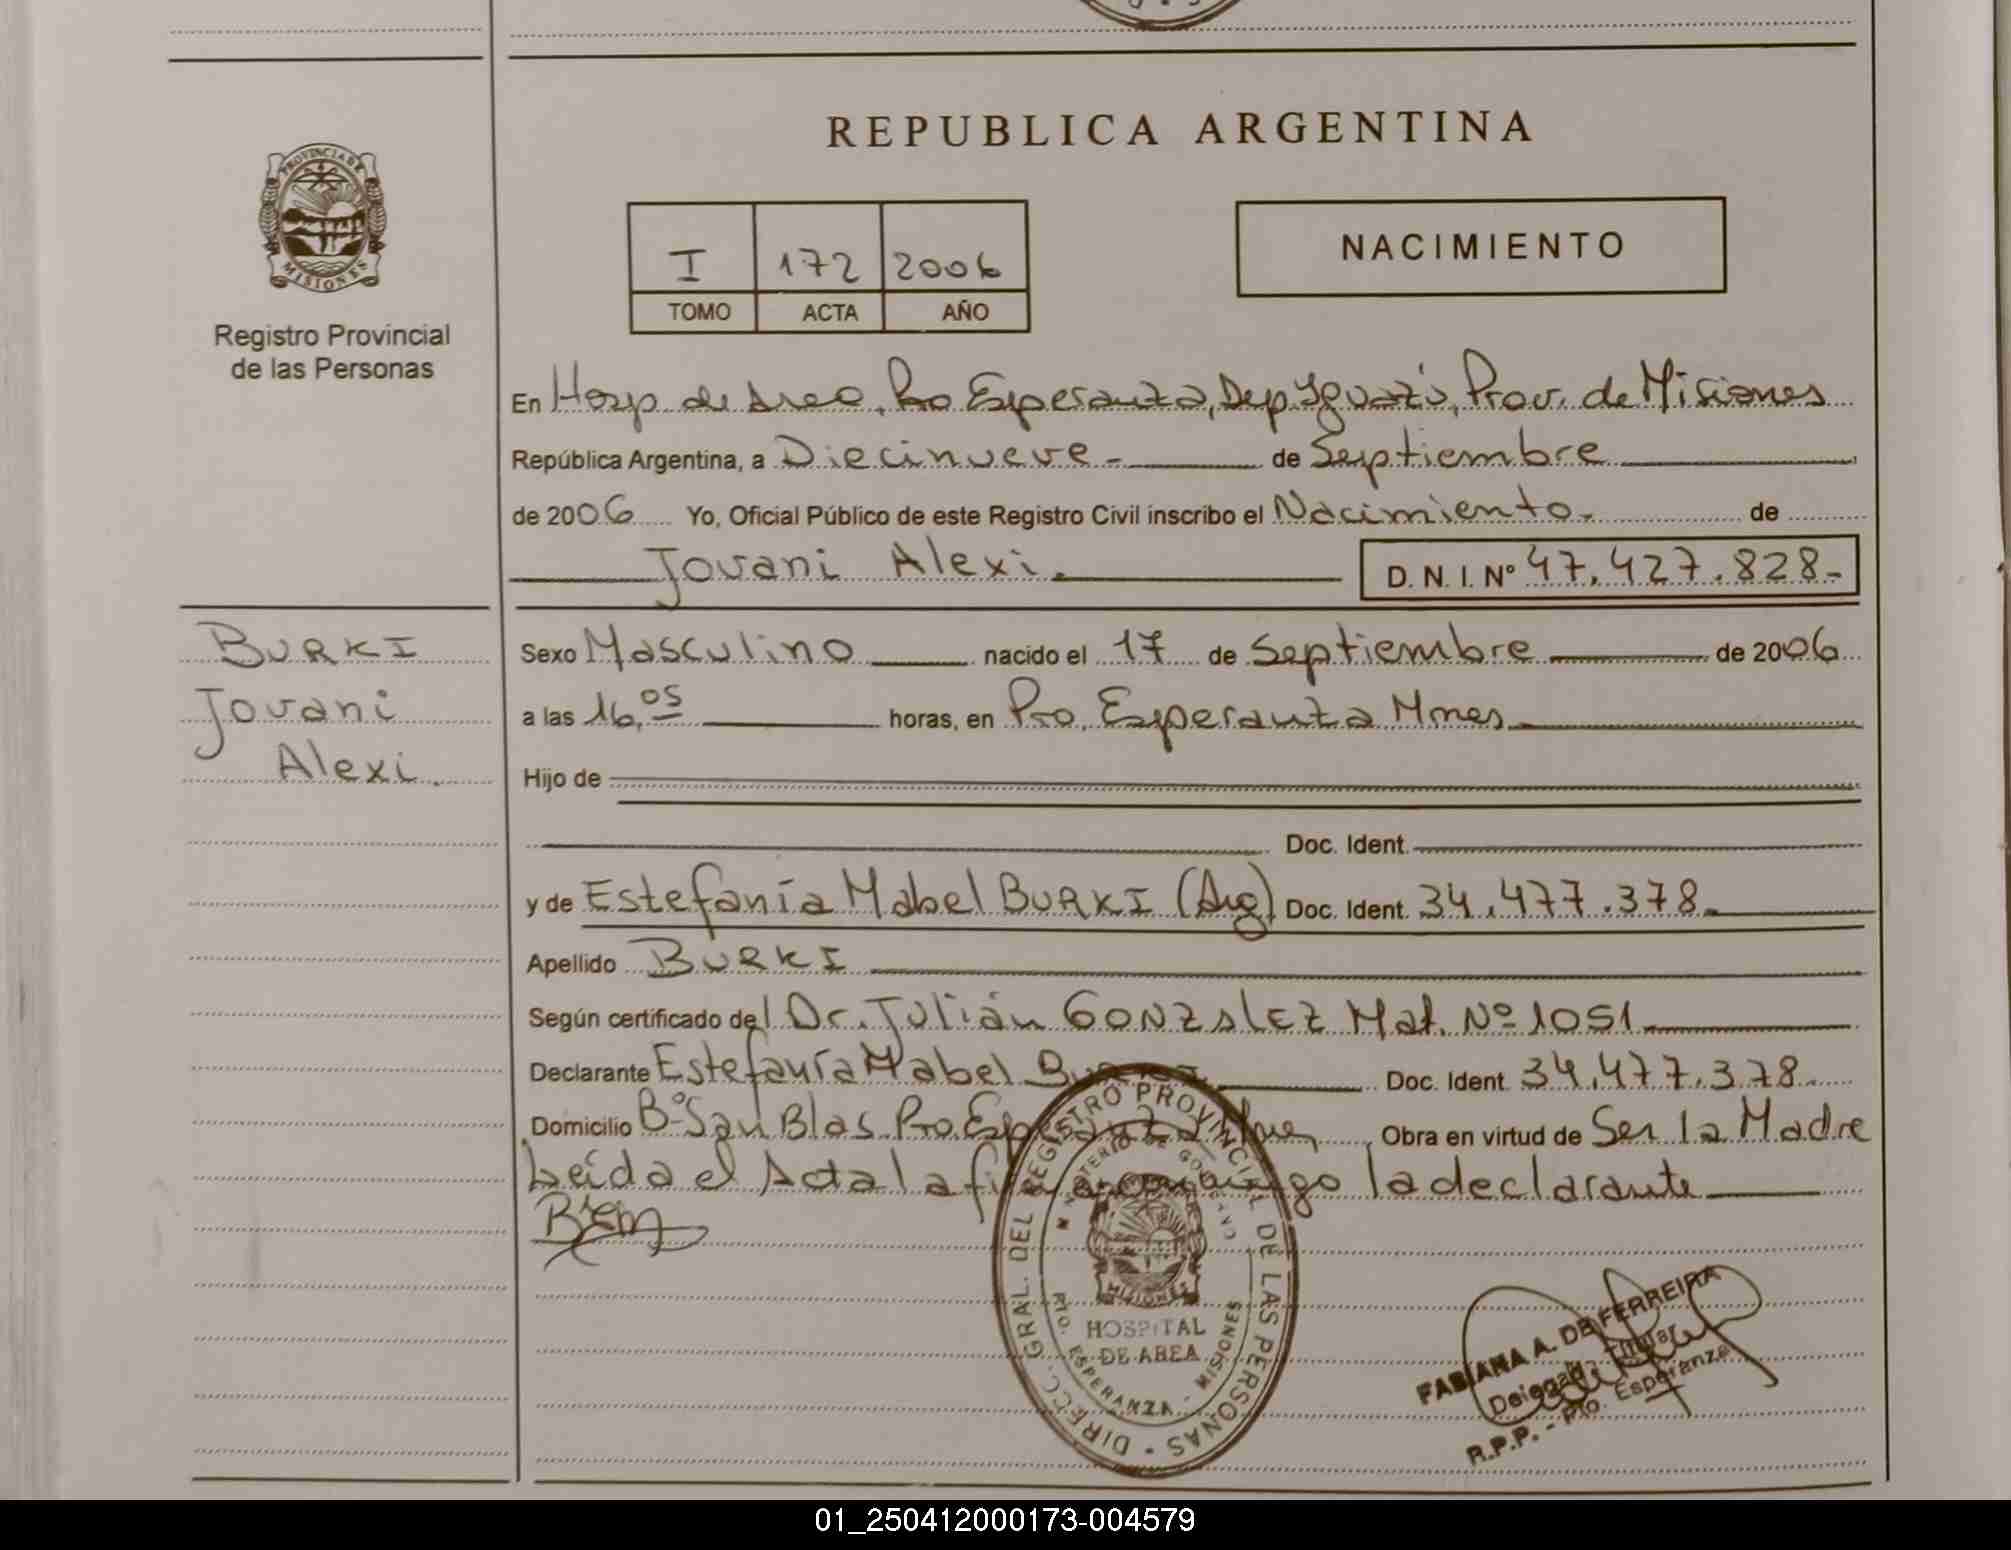 REPUBLICA ARGENTINA
PROVINCIA DE
MISIONES
Registro Provincial
de las Personas
I 172 2006
TOMO ACTA AÑO
NACIMIENTO
En Hosp. de Area, Pto Esperanza, Dep Iguazú, Prov. de Misiones
República Argentina, a Diecinueve - de Septiembre
de 2006 Yo, Oficial Público de este Registro Civil inscribo el Nacimiento. de
Jovani Alexi. D. N. I. Nº 47.427.828-
BURKI
Jovani
Alexi.
Sexo Masculino nacido el 17 de Septiembre de 2006
a las 16,05 horas, en Pto. Esperanza Mnes
Hijo de
Doc. Ident.
y de Estefanía Mabel BURKI (Arg) Doc. Ident. 34.477.378
Apellido BURKI
Según certificado del Dr. Julián GONZALEZ Mat. Nº 1051
Declarante Estefanía Mabel Burki Doc. Ident. 34.477.378
Domicilio Bº San Blas Pto Esperanza Mnes, Obra en virtud de Ser la Madre
Leída el Acta la firma conmigo la declarante
DIRECC. GRAL. DEL REGISTRO PROVINCIAL DE LAS PERSONAS
MINISTERIO DE GOBIERNO
MISIONES
HOSPITAL
DE AREA
PTO. ESPERANZA - MISIONES
FABIANA A. DE FERREIRA
Delegada Titular
R.P.P. - Pto. Esperanza
01_250412000173-004579